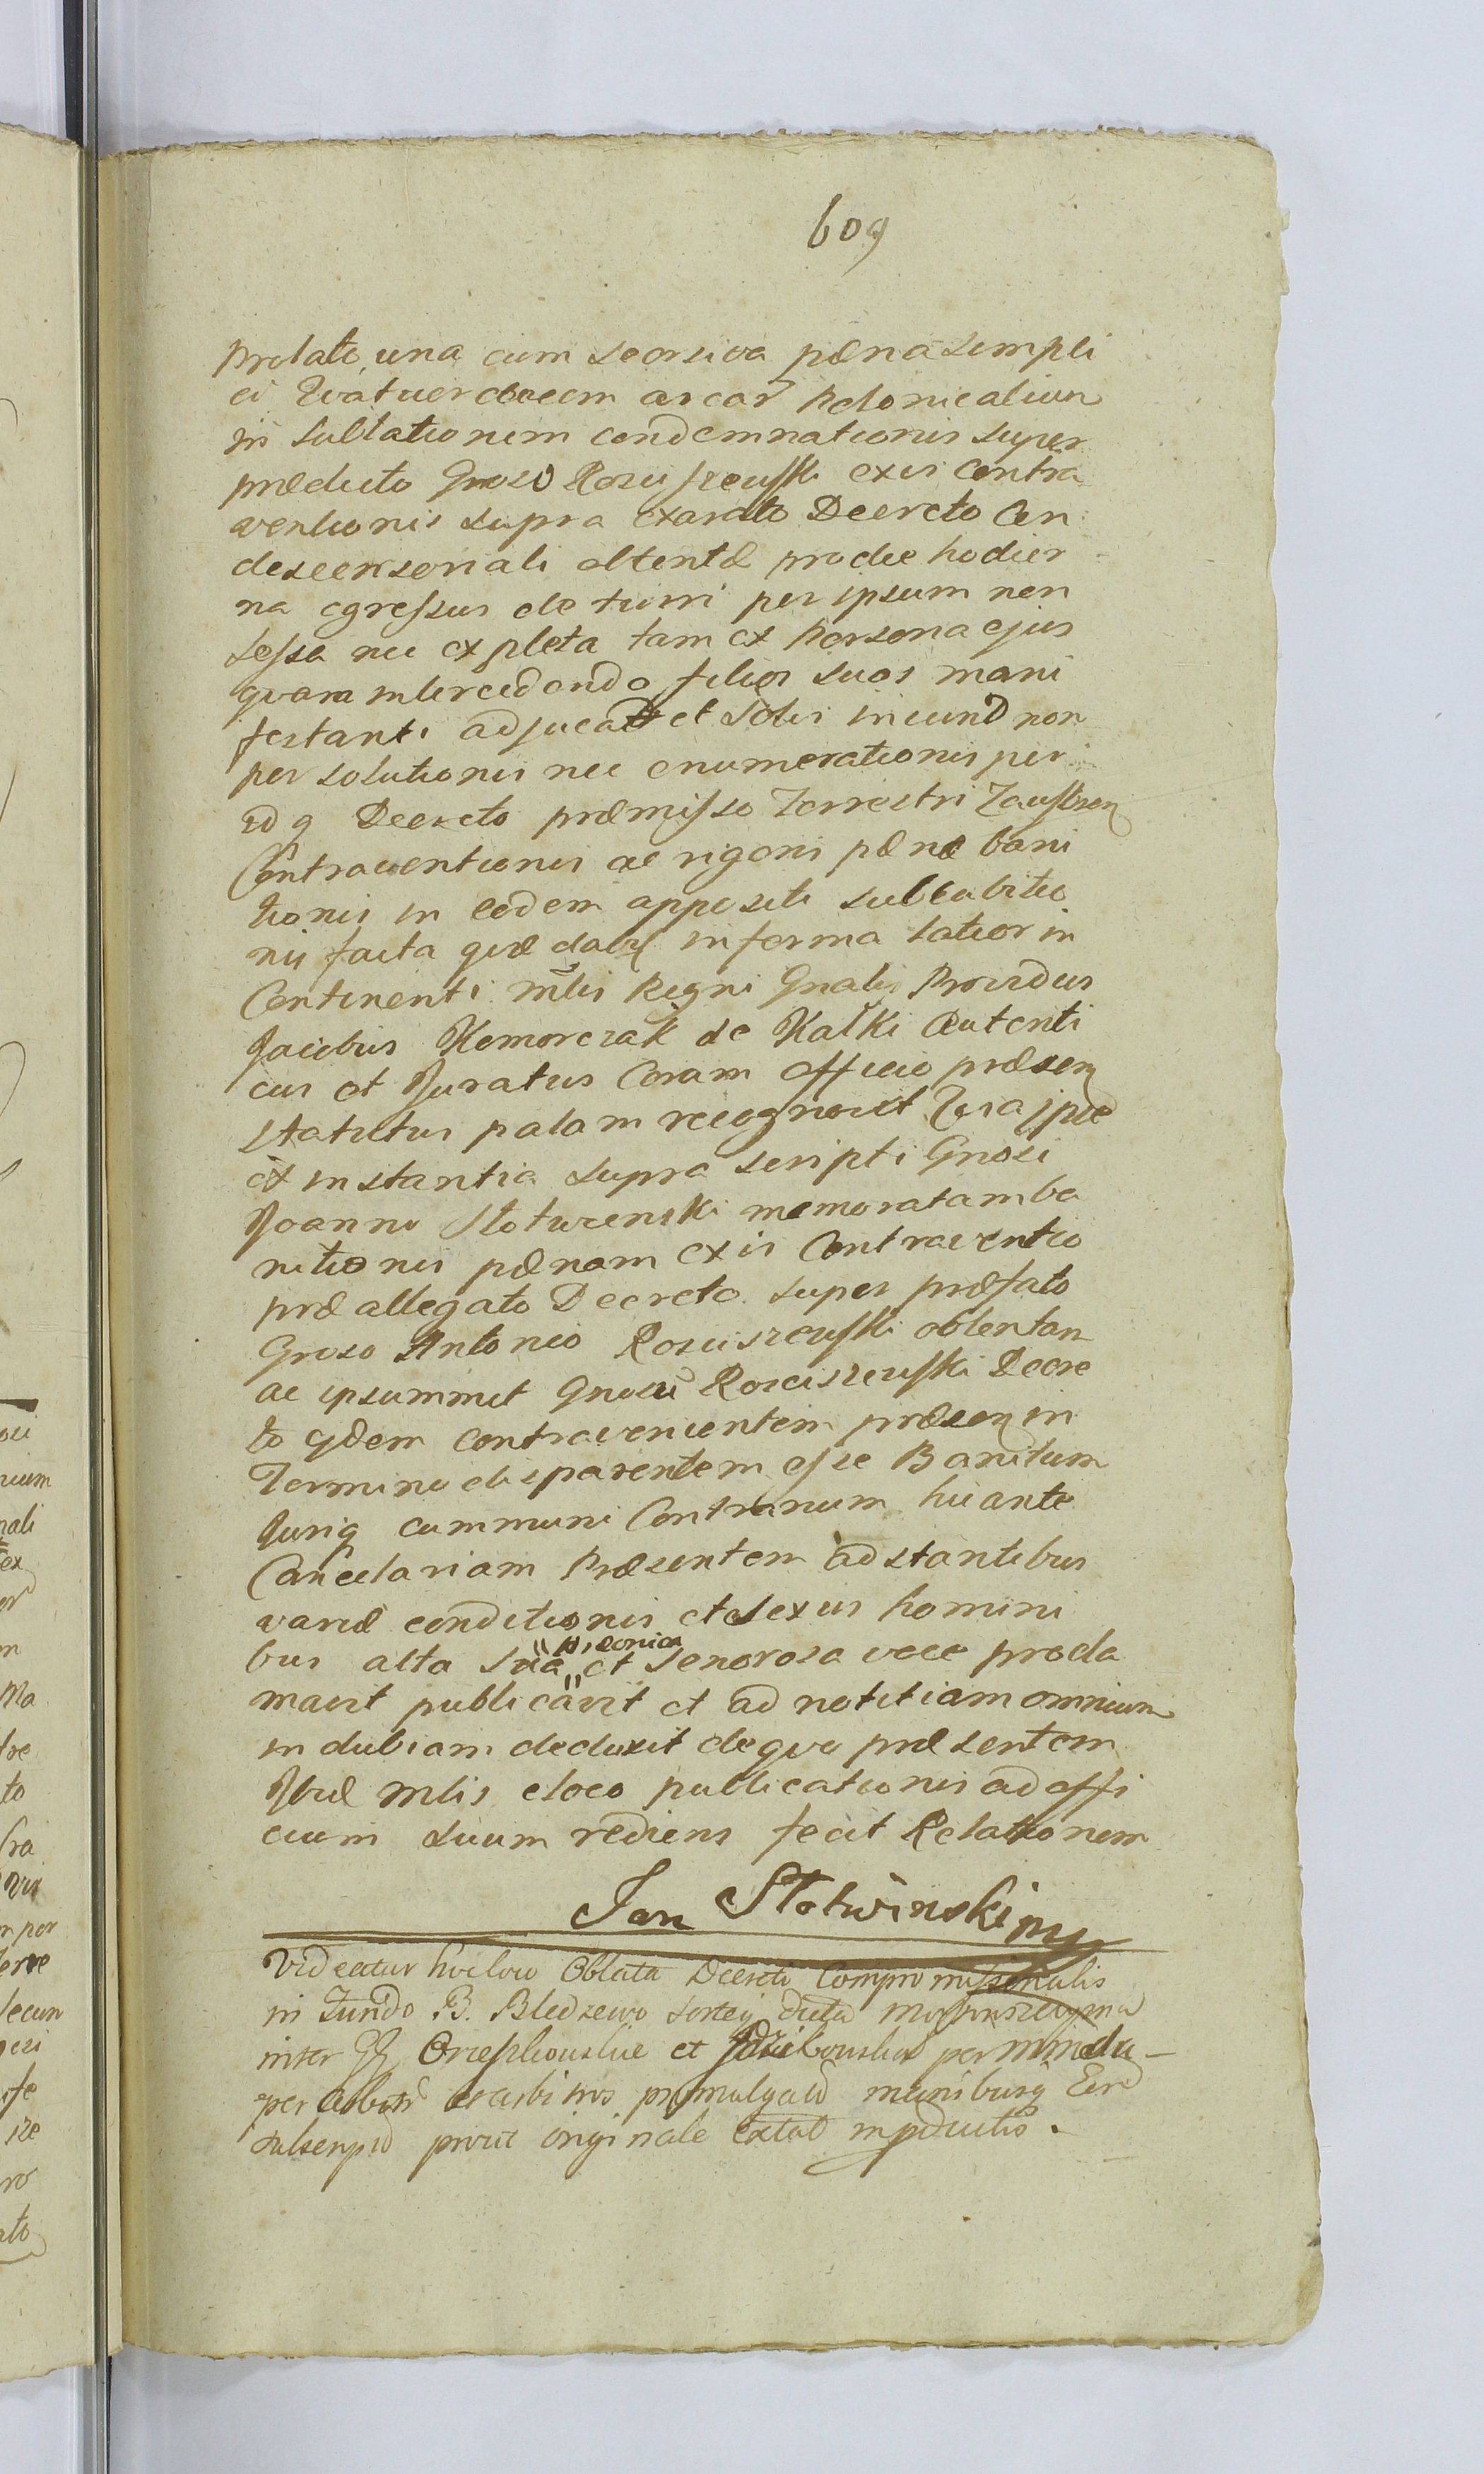 609
prolato, una cum seorsiva pæna simpli
ci Quatuordecem arcar Polonicalium
in sublationem condemnationis super
prædicto Gnoso Rosciszewski exis Contra
ventionis supra exarato Decreto Con
descensoriali obtentæ pro die hodier
na egressus de turri per ipsum non
sessa nec expleta tam ex Persona ejus
quam intercedendo filios suos mani
festanti adjucat et Solis in eund non
per solutionis nec enumerationis per
idq Decreto præmisso Terrestri Zauskren
Contraventionis ac rigoris pænæ bani
tionis in eodem appositi sub
nii facta quæ in forma latior in
Continenti Mlis Regni Gnalis Providus
Jacobus Komorczak de Kałki Autenti
cus et Juratus Coram Officio præsen
statutus palam recognovit
ex instantia supra scripti Gnosi
Joannis Słotwinski memoratam ba
nitionis pænam exis Contraventio
præ allegato Decreto super præfato
Gnoso Antonio Rosciszewski obtentan
ac ipsummet Gnosū Rosciszewski Decre
to qdem contravenientem præsen in
Termino disparentem esse Banitum
Juriq cummuni Contrarium hic ante
Cancelariam Præsentem adstantibus
variæ conditionis et sexus homini
bus alta sua et senorosa voce procla
mavit publicavit et ad notitiam omnium
indubiam deduxit de quo præsentem
Mlis eloco publicationis ad offi
cium suum rediens fecit Relationem
Jan Słotwinski mp
Videatur hocloco Oblata Decreti Compromissorialis
in Fundo B. Bledzewo dicta
inter GG et per
per arbitros promulgati
subscripti prout originale extat inpductō.